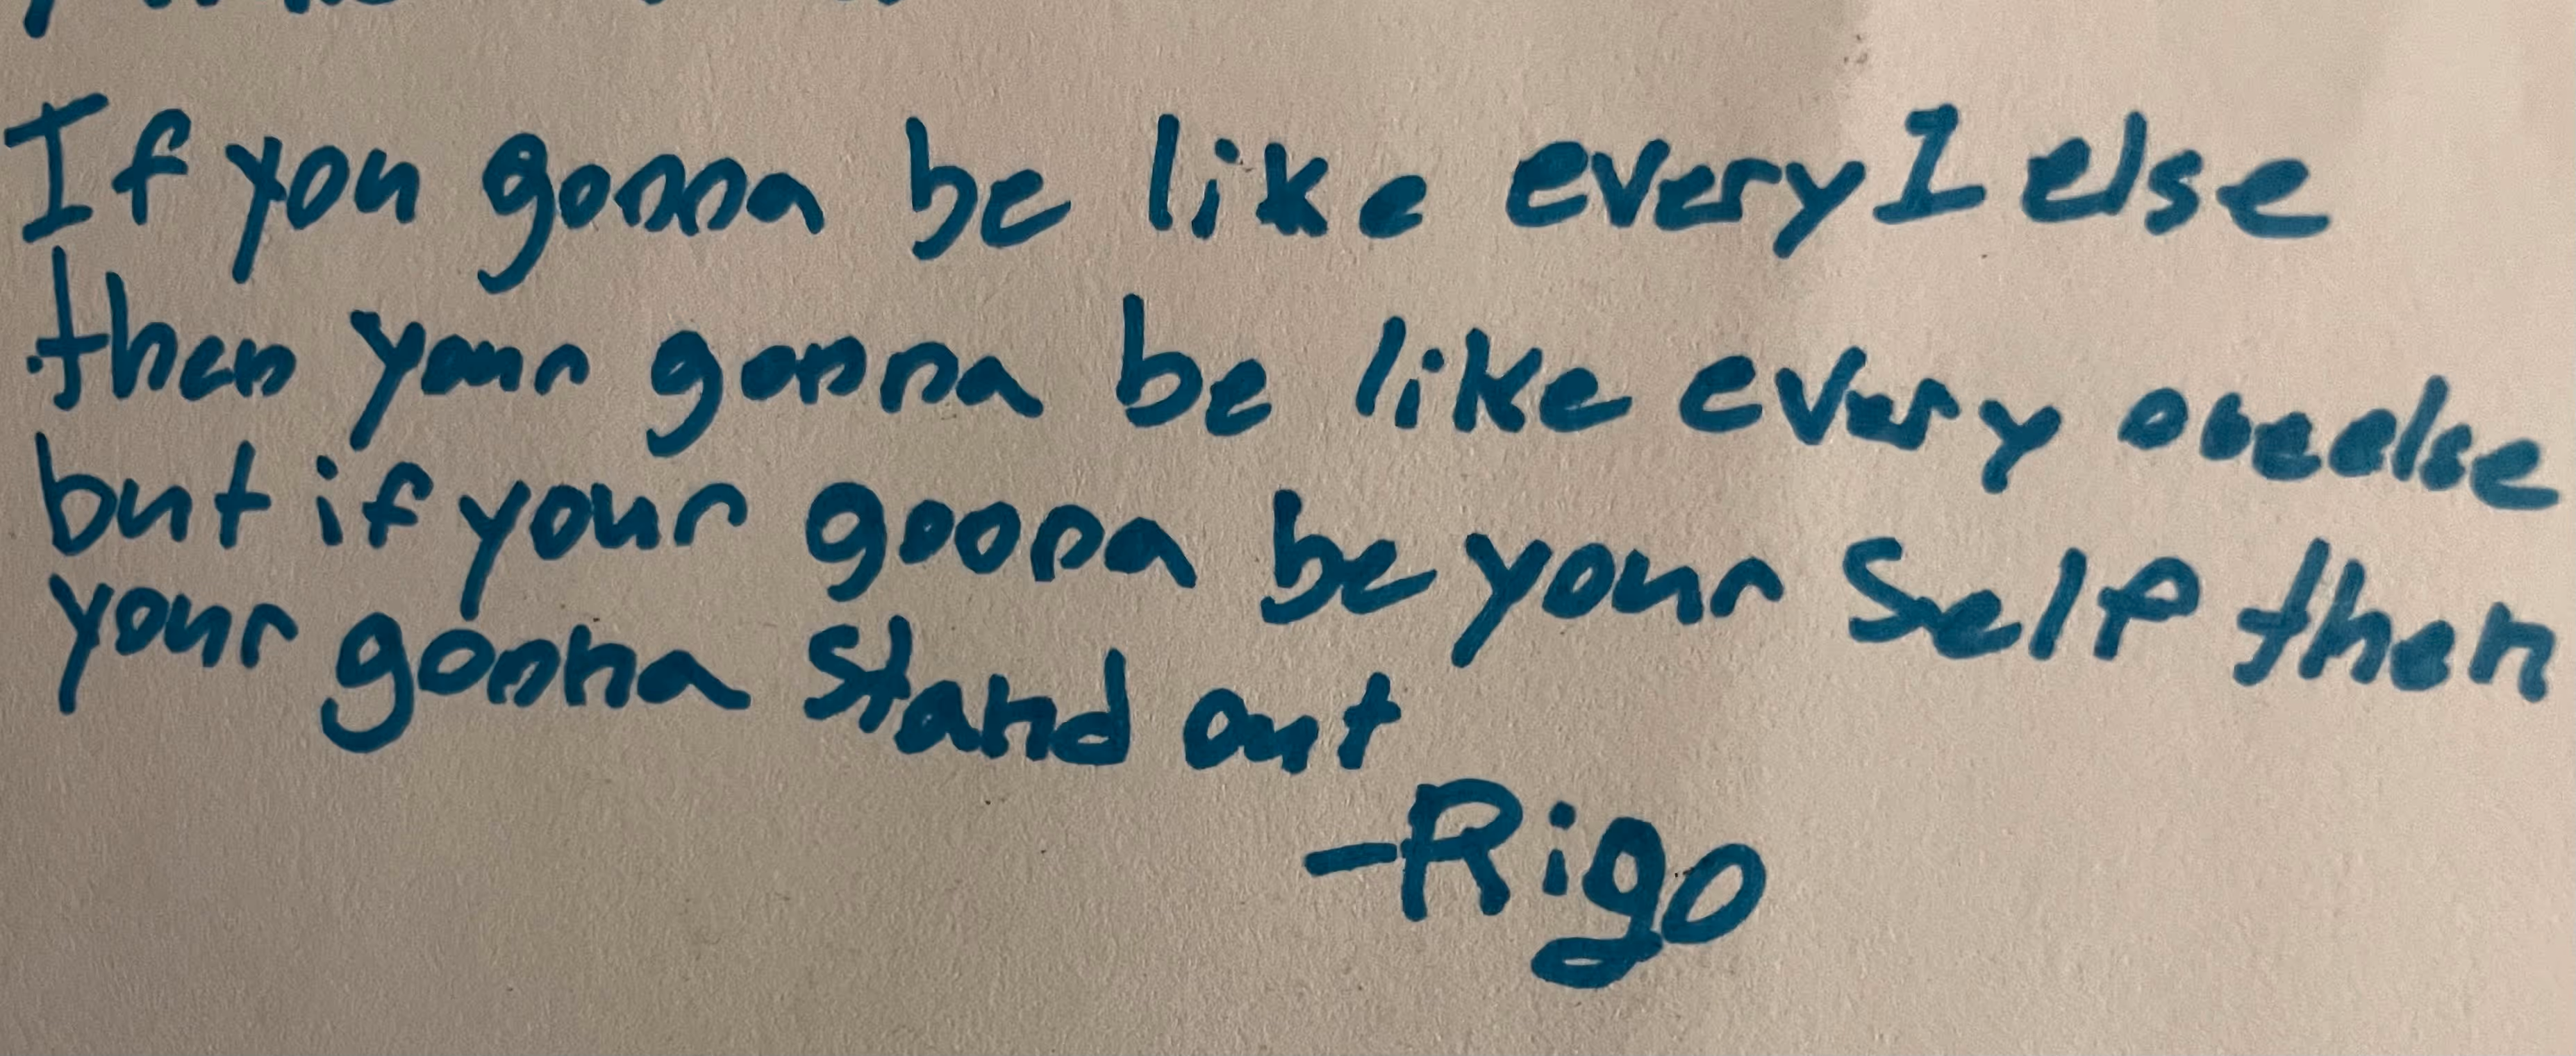 If you gonna be like every1 else
then your gonna be like every oneelse
but if your gonna be your self then
your gonna stand out
-Rigo